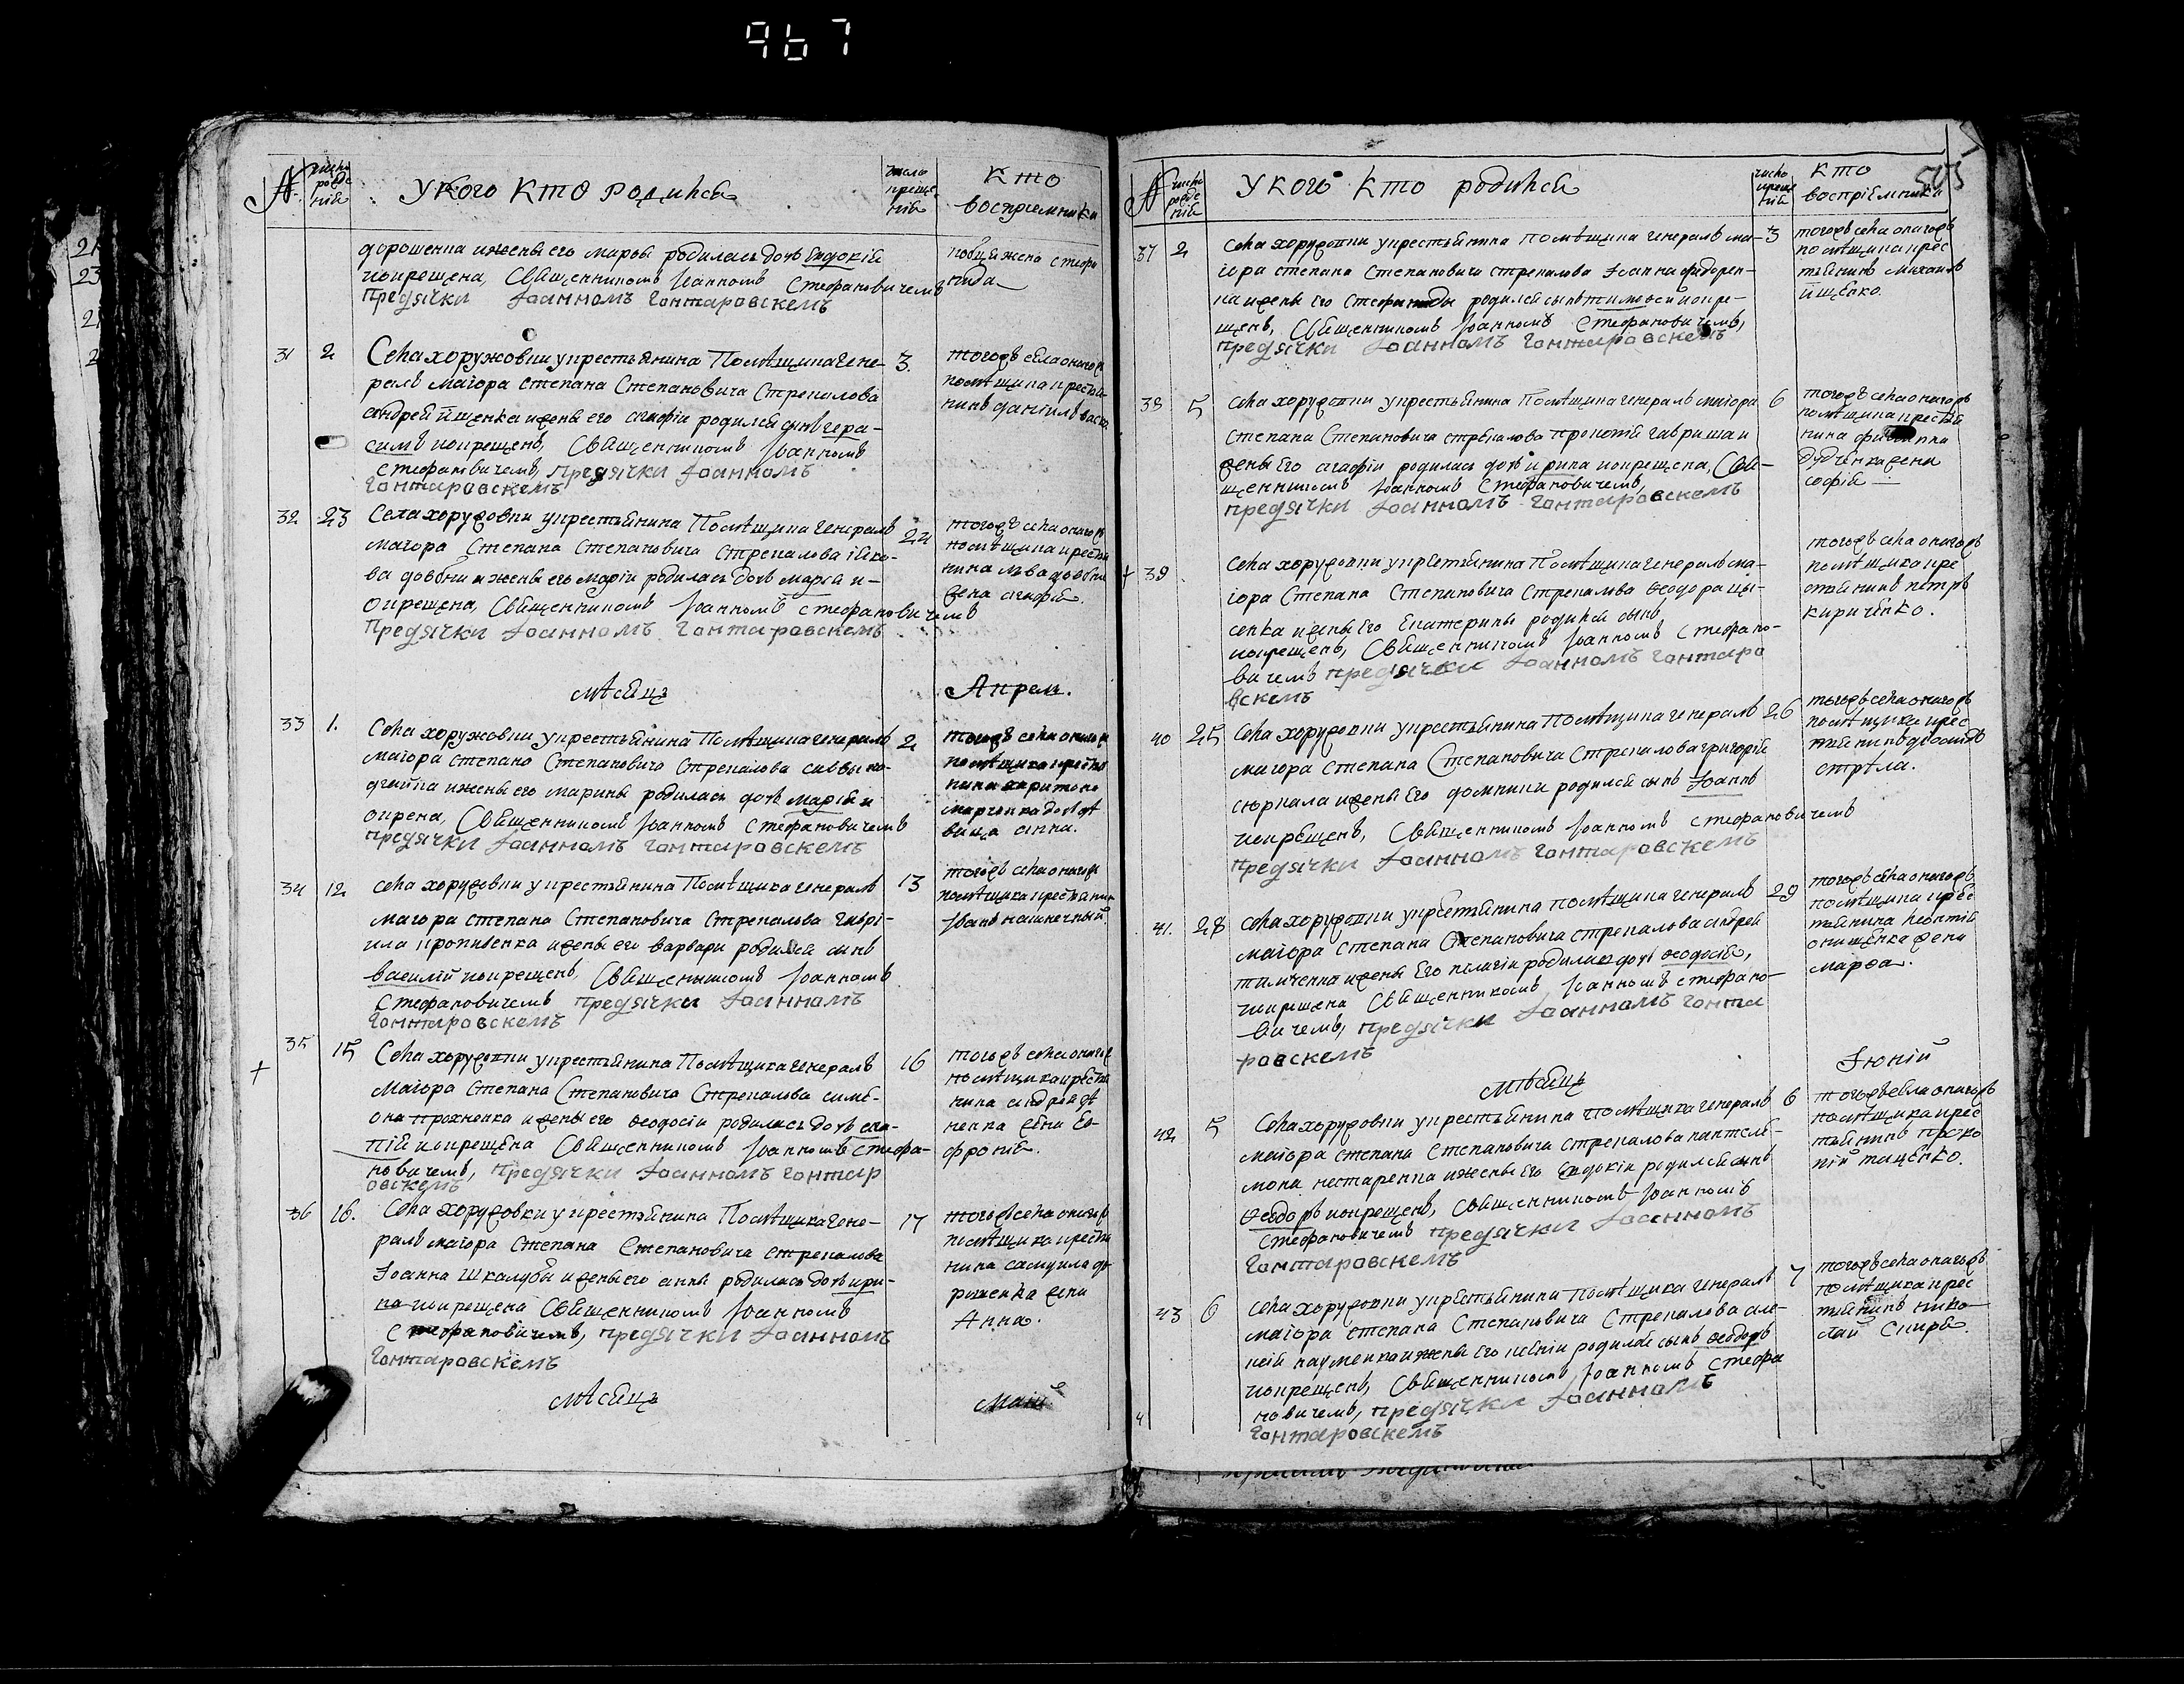 967
21
23
2
2
№ число рожде ній У кого Кто родился число креще ній Кто воспріемники
дорошенка и жены его марѳы родилась дочь Евдокія
и окрещена, Священникомъ Іоанномъ Стефановичемъ
Предячки Іоанномъ Гонтаровскемъ
жена стефа
нида
31 2 Села хоружовки у крестьянина Помѣщика Гене- 3.
ралъ Маіора степана Степановича Стрекалова
андрея йщенка и жены его агафіи родился сынъ гера-
симъ и окрещенъ, Священникомъ Іоанномъ
Стефановичемъ, предячки Іоанномъ
Гонтаровскемъ
тогожъ села оногожъ
помѣщика крестья
нинъ даніилъ
32 23 Села хоружовки у крестьянина Помѣщика Генералъ 24
маіора Степана Степановича Стрекалова іяко-
ва довбни и жены его маріи родилась дочь марѳа и
окрещена, Священникомъ Іоанномъ стефановичемъ
Предячки Іоанномъ Гонтаровскемъ
тогожъ села оногожъ
помѣщика крестья
нина льва довбни
жена агафія.
мѣсяцъ Апрель.
33 1. Села хоружовки у крестьянина Помѣщика генералъ 2
маіора степана Степановича Стрекалова саввы
и жены его марины родилась дочь марія и
окрена, Священникомъ Іоанномъ Стефановичемъ
предячки Іоанномъ Гонтаровскемъ
тогожъ села оногожъ
помѣщика крестья
нина харитона
марченка дочь дѣ
вица анна.
34 12 села хоружовки у крестьянина Помѣщика генералъ 13
маіора степана Степановича Стрекалова гаврі-
ила кропивенка и жены его варвари родился сынъ
василій и окрещенъ, Священникомъ Іоанномъ
Стефановичемъ предячки Іоанномъ
Гонтаровскемъ
тогожъ села оногожъ
помѣщика крестьянинъ
Іоанъ
35 15 Села хоружовки у крестьянина Помѣщика Генералъ 16
+ Маіора Степана Степановича Стрекалова симе-
она прохненка и жены его ѳеодосіи родилась дочь ага-
пія и окрещена Священникомъ Іоанномъ стефа-
новичемъ, предячки Іоанномъ Гонтар
овскемъ
тогожъ села оногожъ
помѣщика крестья
нина андрея
ненка жена Ев-
фронія.
36 16. Села хоружовки у крестьянина Помѣщика Гене- 17
ралъ маіора Степана Степановича стрекалова
Іоанна шкалубы и жены его анны родилась дочь ири-
на и окрещена Священникомъ Іоанномъ
Стефановичемъ, предячки Іоанномъ
Гонтаровскемъ
тогожъ села оногожъ
помѣщика крестья
нина самуила до
рошенка жена
Анна.
мѣсяцъ Маій
№ число рожде ній У кого Кто родился число креще ній Кто воспріемники 505
37 2 села хоружовки у крестьянина помѣщика генералъ ма- 3
іора степана Степановича стрекалова Іоанна федорен-
ка и жены его Стефаниды родился сынъ тимоѳей и окре-
щенъ, Священникомъ Іоанномъ Стефановичемъ,
предячки Іоанномъ Гонтаровскемъ
тогожъ села оногожъ
помѣщика крес
тьянинъ михаилъ
йщенко.
38 5 села хоружовки у крестьянина Помѣщика генералъ маіора 6
степана Степановича стрекалова прокопія гавриша и
жены его агафіи родилась дочь ирина и окрещена, Свя-
щенникомъ Іоанномъ Стефановичемъ,
предячки Іоанномъ Гонтаровскемъ
тогожъ села оногожъ
помѣщика крестья
нина филиппа
дудченка жена
софія
+ 39 села хоружовки у крестьянина Помѣщика генералъ ма-
іора Степана Степановича Стрекалова ѳеодора цы-
сенка и жены его Екатерины родился сынъ
и окрещенъ, Священникомъ Іоанномъ Стефано-
вичемъ предячки Іоанномъ Гонтаро
вскемъ
тогожъ села оногожъ
помѣщика кре
стьянинъ петръ
кириченко.
40 25 Села хоружовки у крестьянина Помѣщика генералъ 26
маіора степана Степановича Стрекалова григорія
и жены его домникии родился сынъ Іоаннъ
и окрещенъ, Священникомъ Іоанномъ стефановичемъ
предячки Іоанномъ Гонтаровскемъ
тогожъ села оногожъ
помѣщика крес
тьянинъ
стрѣла.
41. 28 села хоружовки у крестьянина помѣщика генералъ 29
маіора степана Степановича стрекалова андрея
тимченка и жены его пелагіи родилась дочь ѳеодосія,
и окрещена Священникомъ Іоанномъ стефано-
вичемъ, предячки Іоанномъ Гонта
ровскемъ
тогожъ села оногожъ
помѣщика крес
тьянина леонтія
онищенка жена
марѳа.
мѣсяцъ Іюній
42 5 Села хоружовки у крестьянина помѣщика генералъ 6
маіора степана Степановича стрекалова пантеле-
мона нестаренка и жены его Евдокіи родился сынъ
Ѳеодоръ и окрещенъ, Священникомъ Іоанномъ
Стефановичемъ предячки Іоанномъ
Гонтаровскемъ
тогожъ села оногожъ
помѣщика крес
тьянинъ проко
пій таценко.
43 6 села хоружовки у крестьянина помѣщика генералъ 7
маіора степана Степановича Стрекалова але-
ксія науменка и жены его ксеніи родился сынъ ѳеодоръ
и окрещенъ, Священникомъ Іоанномъ Стефа
новичемъ, предячки Іоанномъ
Гонтаровскемъ
тогожъ села оногожъ
помѣщика крес
тьянинъ нико
лай Скирба.